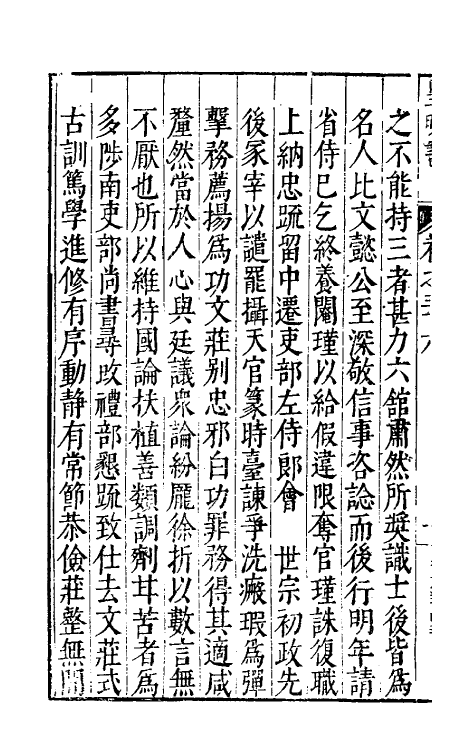 之不能持三者甚力六館肅然所奬識士後皆爲
名人比文懿公至深敬信事咨諗而後行明年請
省侍巳乞終養閹瑾以給假違限奪官瑾誅復職
上納忠䟽留中遷吏部左侍郎會　世宗初政先
後冢宰以譴罷攝天官篆時臺諫爭洗瘢瑕爲彈
擊務薦揚爲功文莊别忠邪白功罪務得其適咸
釐然當於人心與廷議衆論紛厖徐折以數言無
不厭也所以維持國論扶植善類調劑甘苦者爲
多陟南吏部尚書尋改禮部懇䟽致仕去文莊式
古訓篤學進修有序動静有常節恭儉莊整無閒